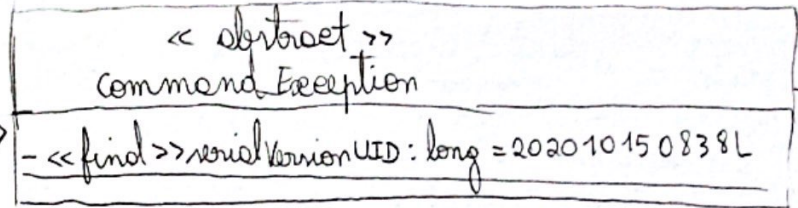 << abstract >>
Command Exception
- << final >> serialVersionUID : long = 202010150838L